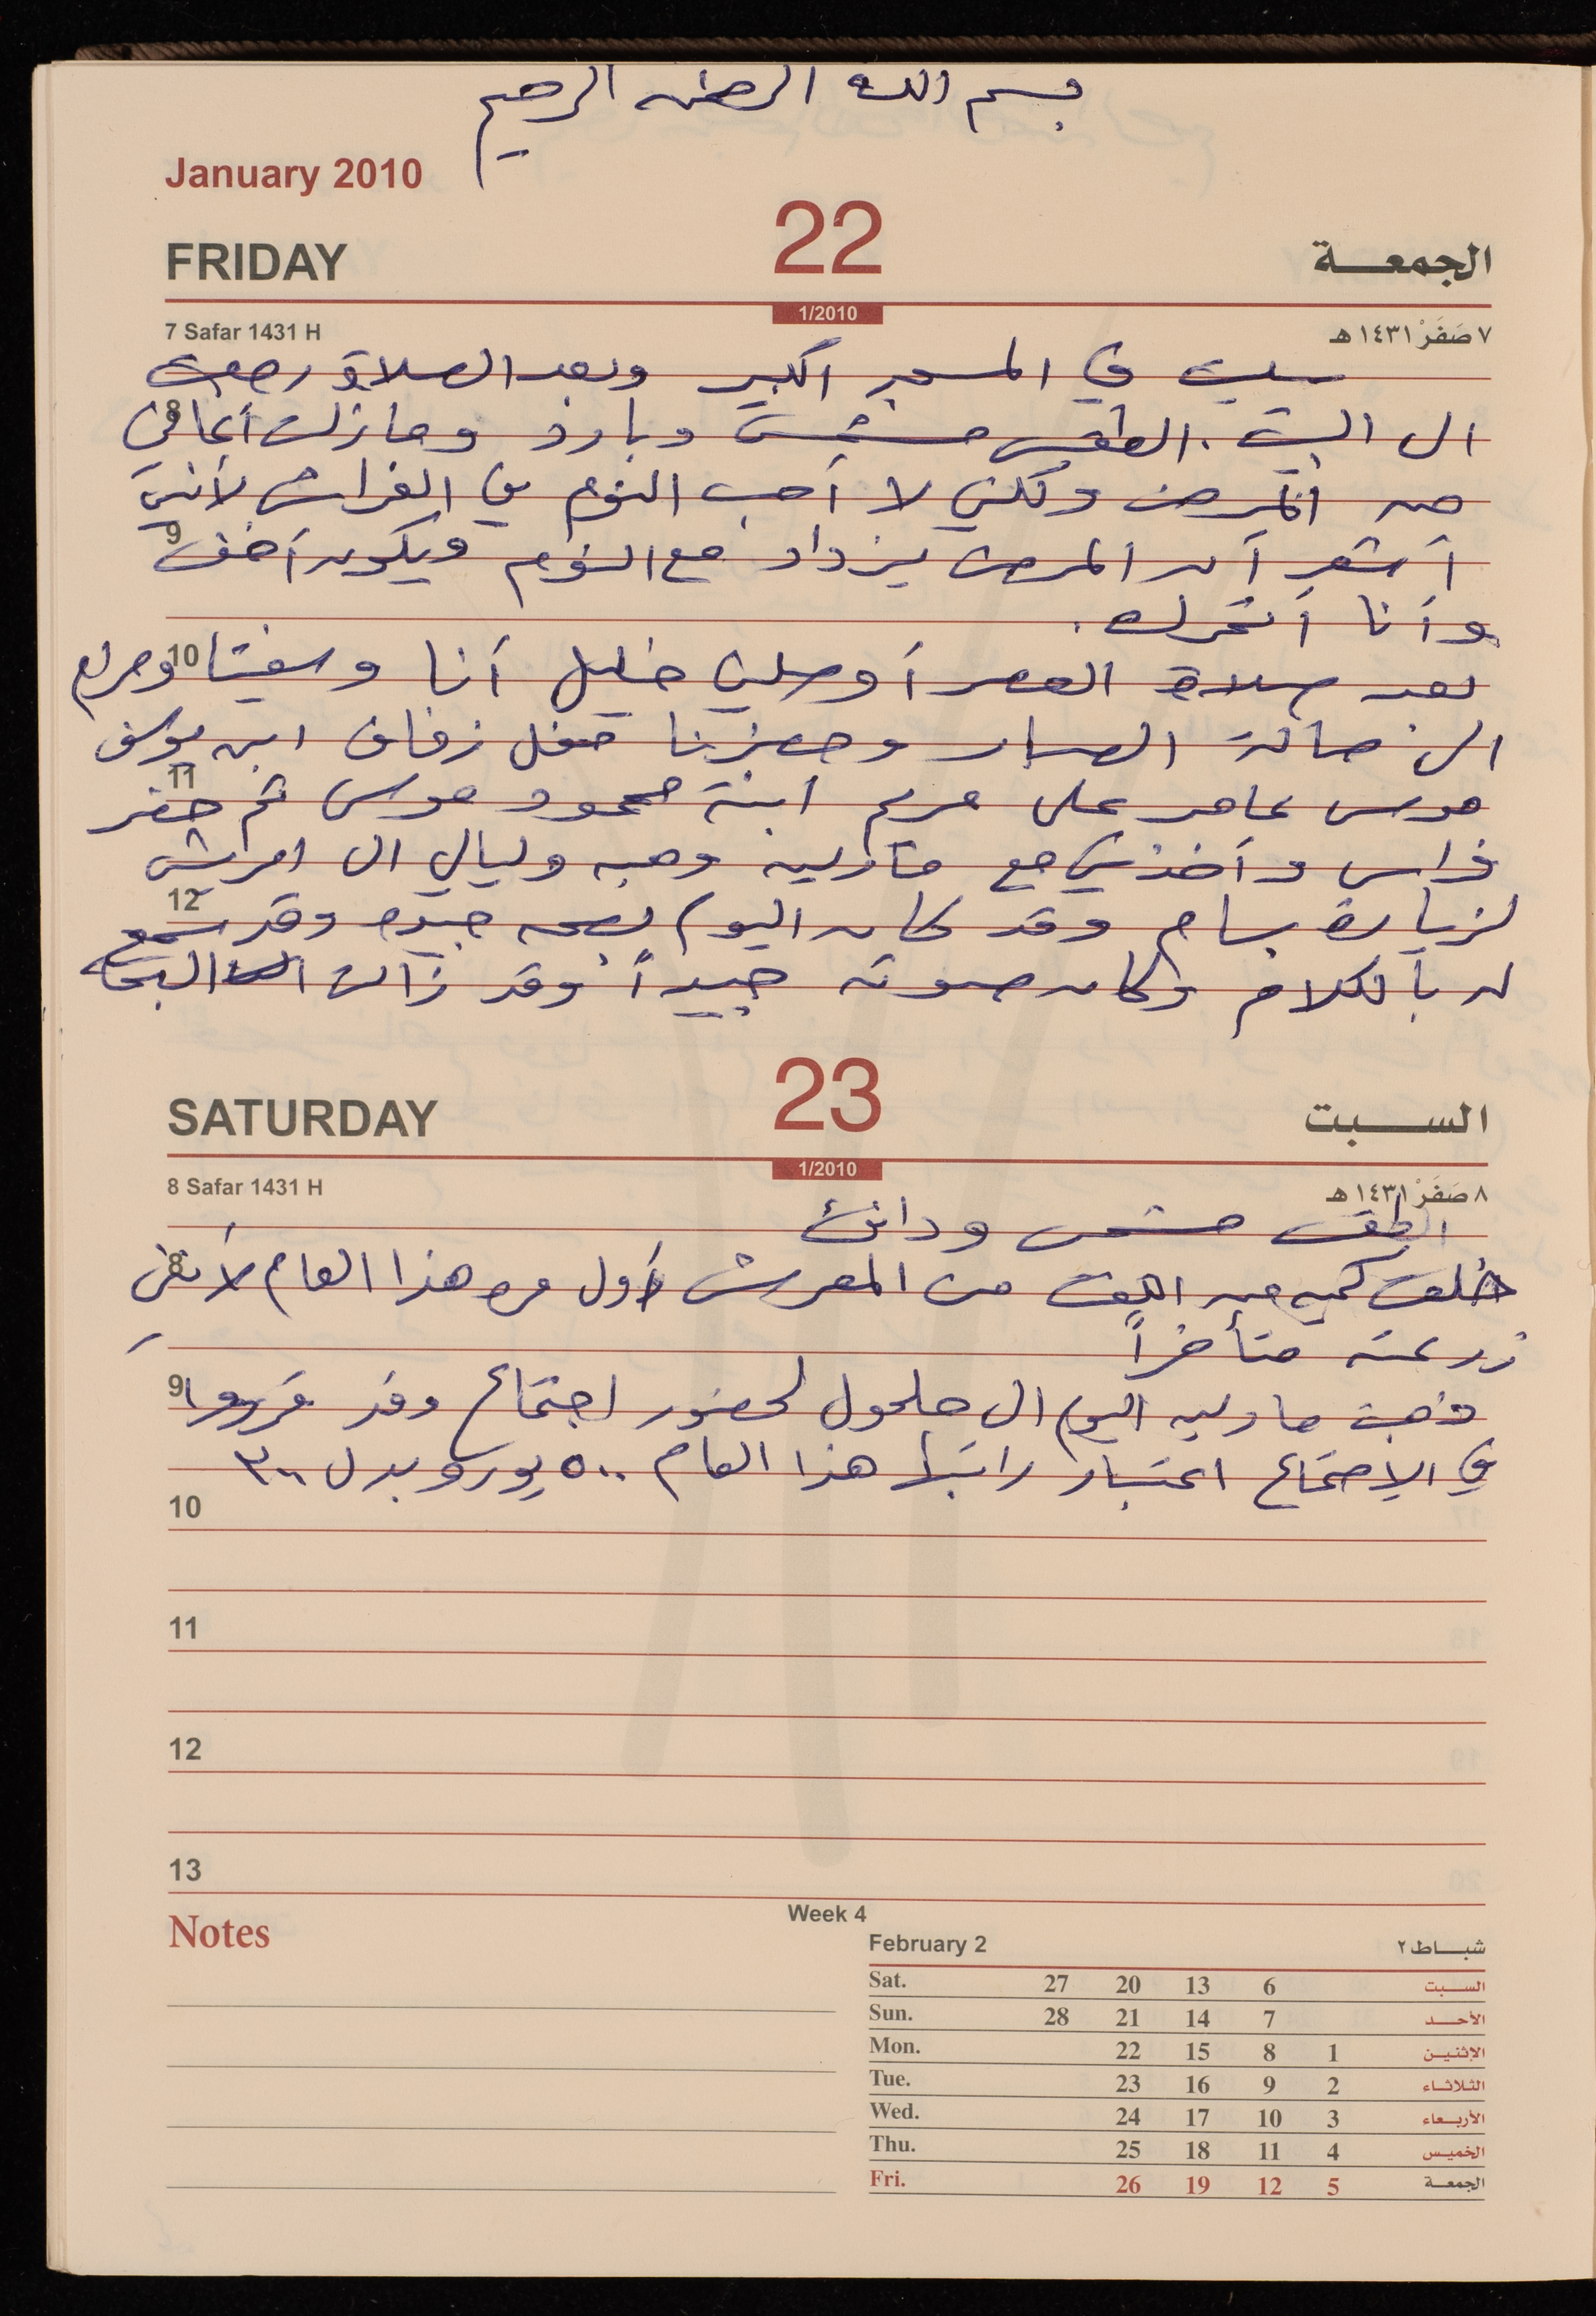 بسم الله الرحمن الرحيم
January 2010
FRIDAY 22 الجمعة
1/2010
7 Safar 1431 H ٧ صَفَرْ ١٤٣١ هـ
صليت في المسجد الكبير وبعد الصلاة رجعت
8
الى البيت. الطقس مشمس وبارد وما زلت أعاني
من المرض ولكني لا أحب النوم في الفراش لأنني
9
أشعر أن المرض يزداد مع النوم ويكون أخف
وأنا أتحرك.
10
بعد صلاة العصر أوصلني خليل أنا وسفيتا ومرام
الى صالة وحضرنا حفل زفاف ابن يوسف
11
موسى عامر على مريم ابنة محمود موسى ثم حضر
فراس وأخذني مع مادلين وهبه وليالي الى
12
لزيارة بسام وقد كان اليوم بصحه جيده وقد سمع
له بالكلام وكان صوته جيداً وقد زالت البحة
SATURDAY 23 السبت
1/2010
8 Safar 1431 H ٨ صَفَرْ ١٤٣١ هـ
الطقس مشمس ودافئ
8
خلعت كميه من من المعرش لأول مره هذا العام لأنني
زرعته متأخراً
9
ذهبت مادلين اليوم الى حلحول لحضور اجتماع وقد قرروا
في الاجتماع اعتبار راتبها هذا العام ٥٠٠ يورو بدل ٣٠٠
10
11
12
13
Notes
Week 4
February 2 شباط ٢
Sat. 27 20 13 6 السبت
Sun. 28 21 14 7 الأحد
Mon. 22 15 8 1 الإثنين
Tue. 23 16 9 2 الثلاثاء
Wed. 24 17 10 3 الأربعاء
Thu. 25 18 11 4 الخميس
Fri. 26 19 12 5 الجمعة